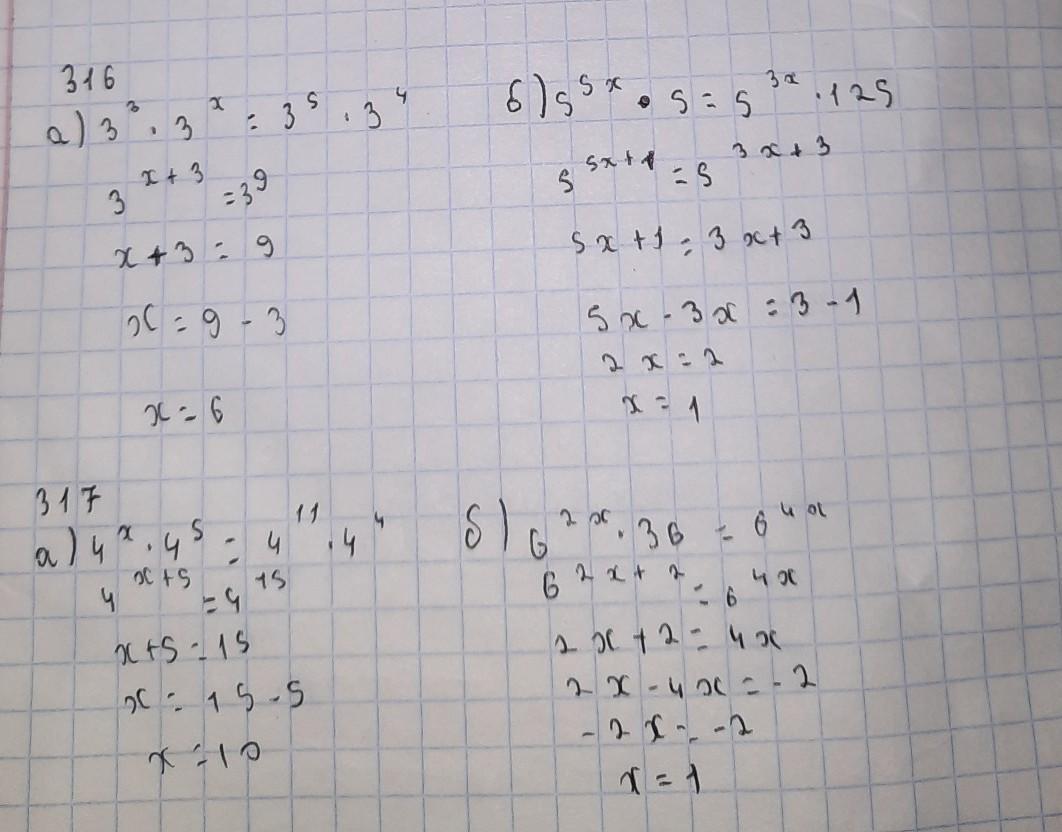 316
а) 3³ · 3ˣ = 3⁵ · 3⁴
3ˣ⁺³ = 3⁹
x + 3 = 9
x = 9 - 3
x = 6
б) 5⁵ˣ · 5 = 5³ˣ · 125
5⁵ˣ⁺¹ = 5³ˣ⁺³
5x + 1 = 3x + 3
5x - 3x = 3 - 1
2x = 2
x = 1
317
а) 4ˣ · 4⁵ = 4¹¹ · 4⁴
4ˣ⁺⁵ = 4¹⁵
x + 5 = 15
x = 15 - 5
x = 10
б) 6²ˣ · 36 = 6⁴ˣ
6²ˣ⁺² = 6⁴ˣ
2x + 2 = 4x
2x - 4x = -2
-2x = -2
x = 1